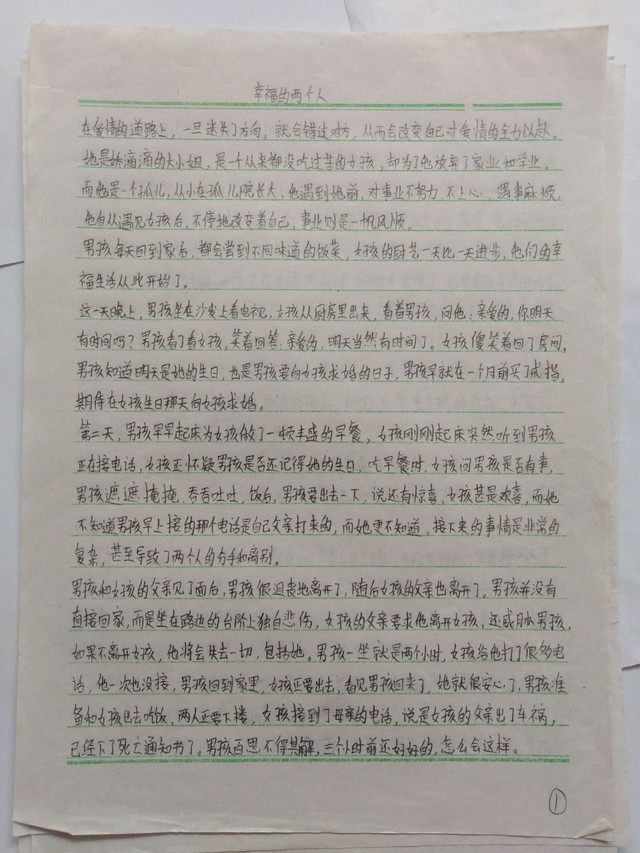 幸福的两个人
在爱情的道路上，一旦迷失了方向，就会错过对方，从而会改变自己对爱情的全力以赴。
她是娇滴滴的大小姐，是一个从来都没吃过苦的女孩，却为了他放弃了家业和学业。
而他是一个孤儿，从小在孤儿院长大，他遇到她前，对事业不努力，不上心，遇事麻烦，
他自从遇见女孩后，不停地改变着自己，事业则是一帆风顺。
男孩每天回到家后，都会尝到不同味道的饭菜，女孩的厨艺一天比一天进步，他们的幸
福生活从此开始了。
这一天晚上，男孩坐在沙发上看电视，女孩从厨房里出来，看着男孩，问他：亲爱的，你明天
有时间吗？男孩看了看女孩，笑着回答：亲爱的，明天当然有时间了。女孩傻笑着回了房间，
男孩知道明天是她的生日，也是男孩要向女孩求婚的日子，男孩早就在一个月前买了戒指，
期待在女孩生日那天向女孩求婚。
第二天，男孩早早起床为女孩做了一顿丰盛的早餐，女孩刚刚起床突然听到男孩
正在接电话，女孩正怀疑男孩是否还记得她的生日，吃早餐时，女孩问男孩是否有事，
男孩遮遮掩掩，吞吞吐吐，饭后，男孩要出去一下，说还有惊喜，女孩甚是欢喜，而她
不知道男孩早上接的那个电话是自己父亲打来的，而她更不知道，接下来的事情是非常的
复杂，甚至导致了两个人的分手和离别。
男孩和女孩的父亲见了面后，男孩很沮丧地离开了，随后女孩的父亲也离开了。男孩并没有
直接回家，而是坐在路边的台阶上独自悲伤，女孩的父亲要求他离开女孩，还威胁男孩，
如果不离开女孩，他将会失去一切，包括她。男孩一坐就是两个小时，女孩给他打了很多电
话，他一次也没接，男孩回到家里，女孩正要出去，看见男孩回来了，她就很安心了，男孩准
备和女孩出去吃饭，两人正要下楼，女孩接到了母亲的电话，说是女孩的父亲出了车祸，
已经下了死亡通知书了。男孩百思不得其解，三个小时前还好好的，怎么会这样。
①